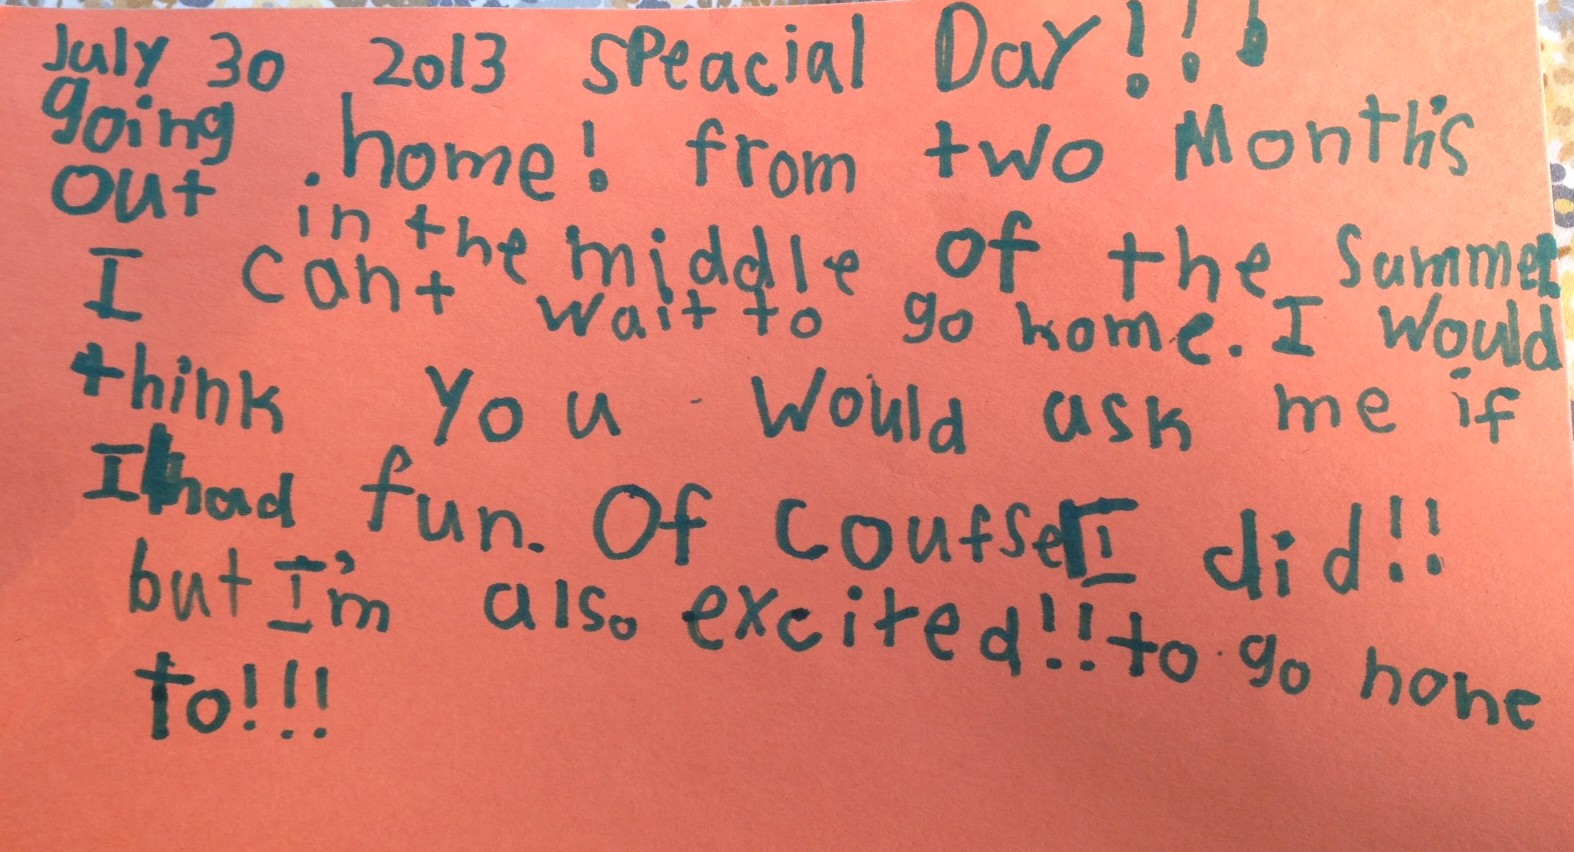 July 30 2013 speacial Day!!!
going .home! from two Month's
out in the middle of the Summer
I can't wait to go home. I would
think you would ask me if
I had fun. Of course I did!!
but I'm also excited!!to go home
to!!!